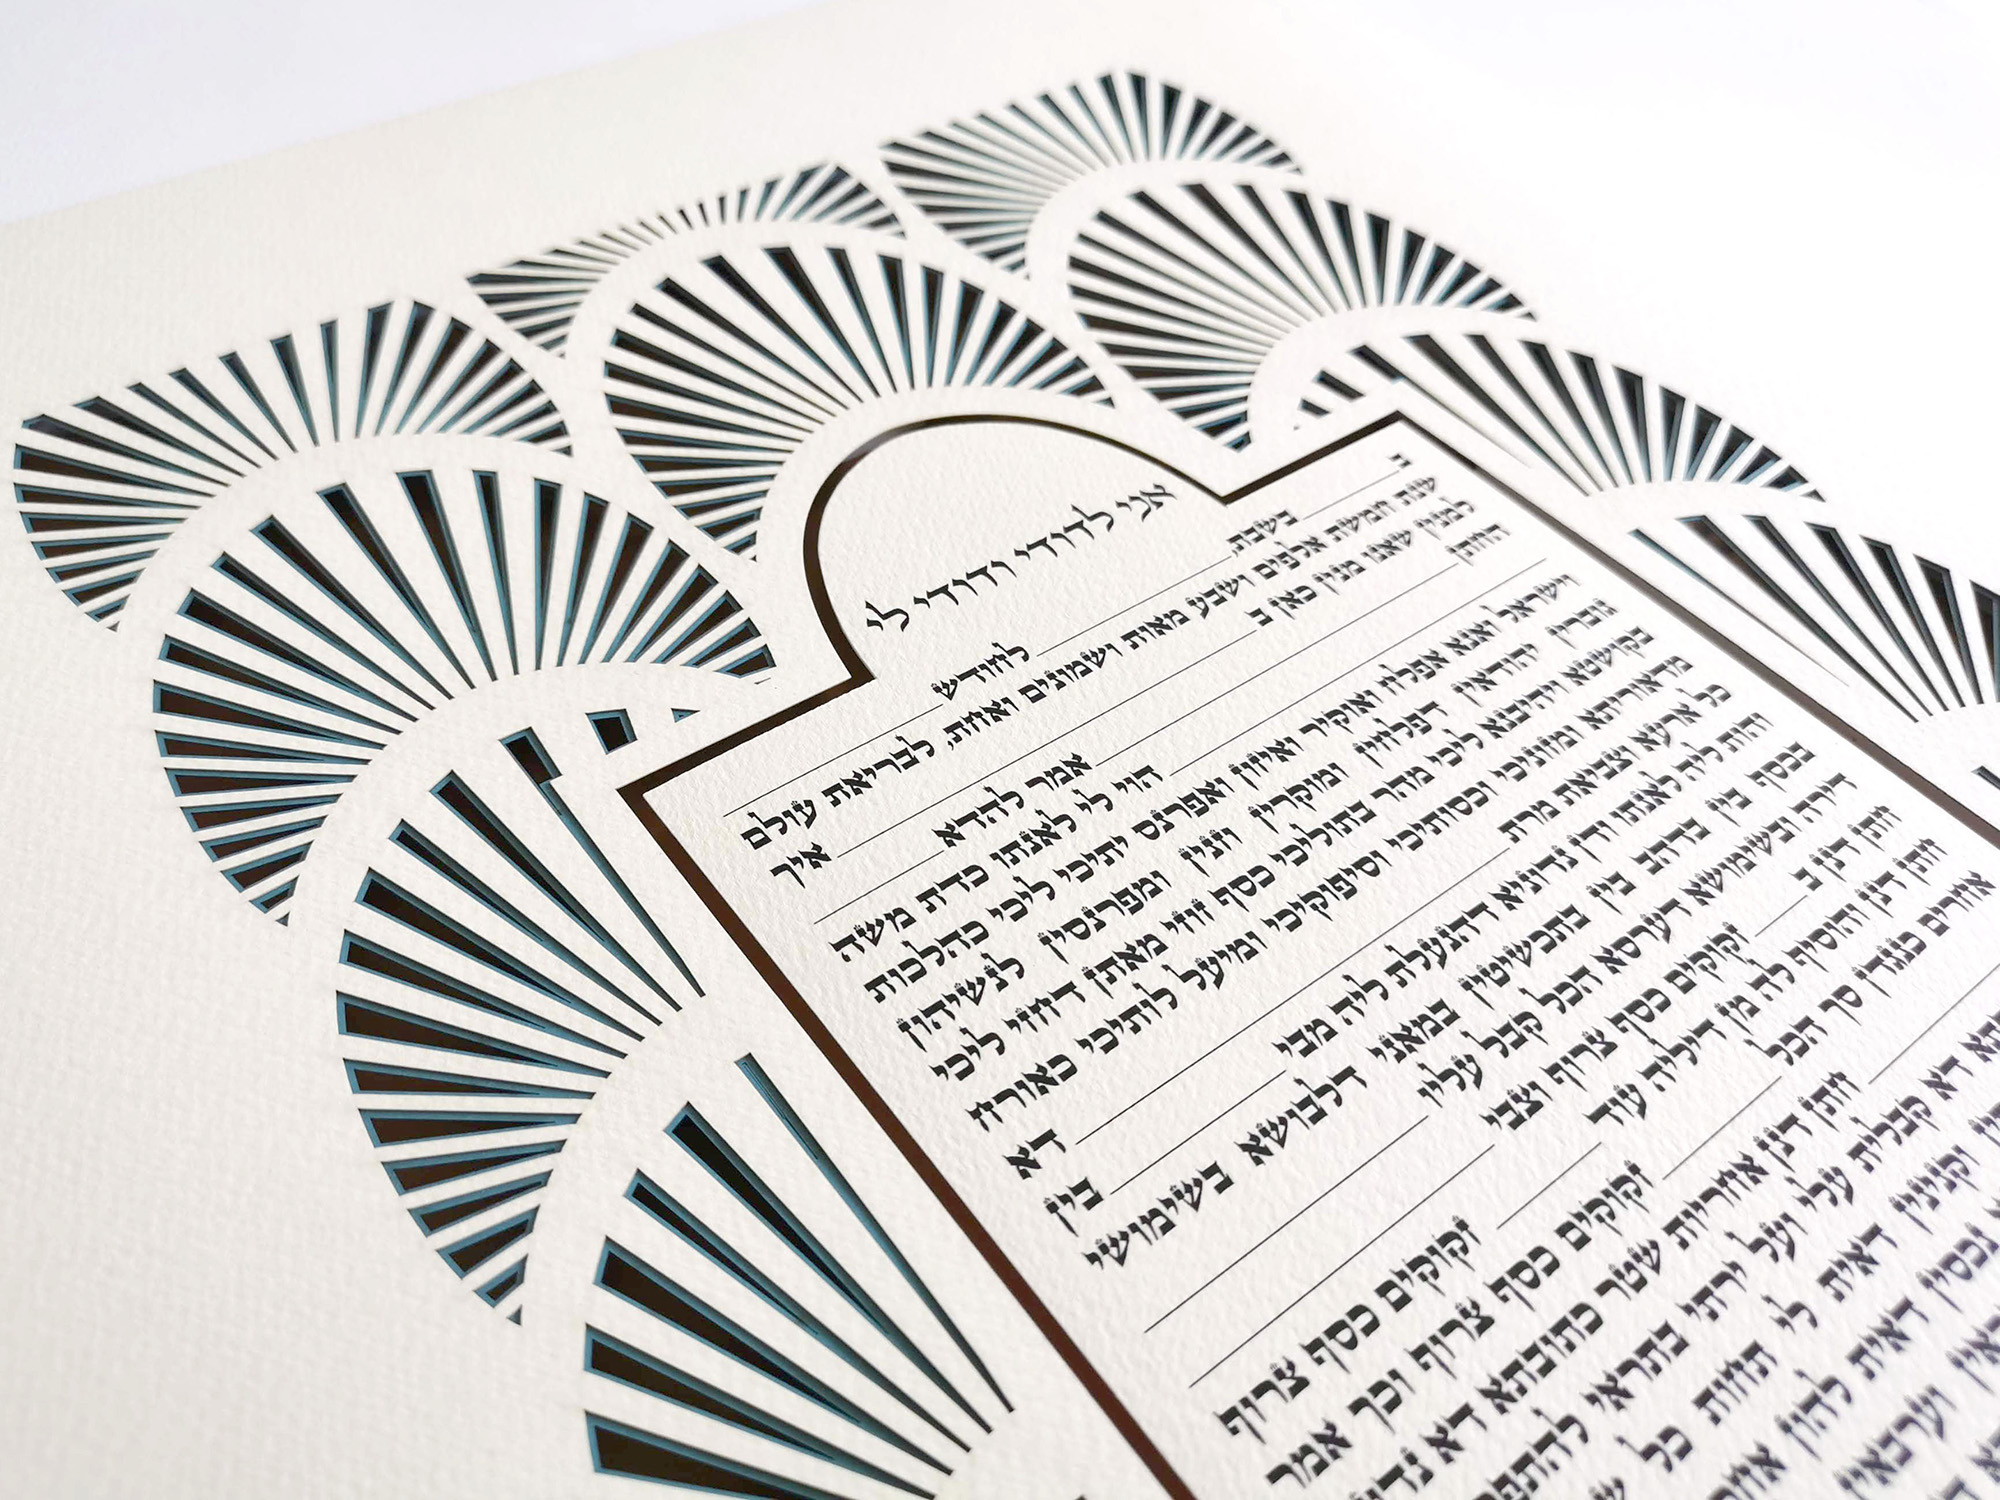 אני לדודי ודודי לי
ב בשבת, לחודש
שנת חמשת אלפים ושבע מאות ושמונים ואחת, לבריאת עולם
למנין שאנו מנין כאן ב איך
החתן אמר להדא
הוי לי לאנתו כדת משה
וישראל ואנא אפלח ואוקיר ואיזון ואפרנס יתיכי ליכי כהלכות
גוברין יהודאין דפלחין ומוקרין וזנין ומפרנסין לנשיהון
בקושטא ויהיבנא ליכי מהר בתוליכי כסף זוזי מאתן דחזי ליכי
מדאוריתא ומזוניכי וכסותיכי וסיפוקיכי ומיעל לותיכי כאורח
כל ארעא וצביאת מרת דא
והות ליה לאנתו ודן נדוניא דהנעלת ליה מבי בין
בכסף בין בדהב בין בתכשיטין במאני דלבושא בשימושי
דירה ובשימושא דערסא הכל קבל עליו
חתן דנן ב זקוקים כסף צרוף וצבי
חתן דנן והוסיף לה מן דיליה עוד זקוקים כסף צרוף
אחרים כנגדן סך הכל זקוקים כסף צרוף וכך אמר
חתן דנן אחריות שטר כתובתא דא
דא קבלית עלי ועל ירתי בתראי
וקנינין דאית לי תחות כל
נכסין דאית להון
וערבאין